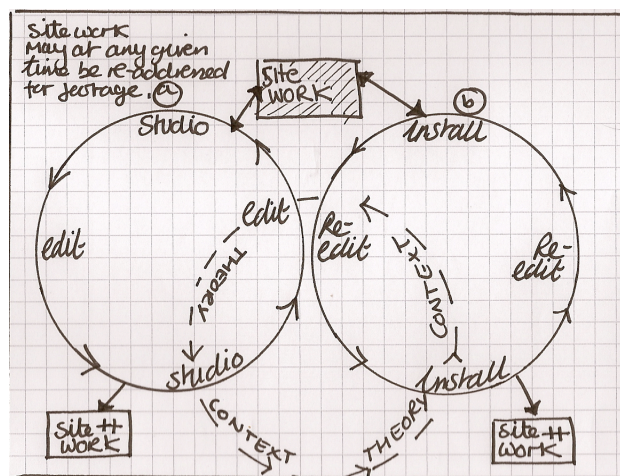 Site work
May at any given
time be re-addressed
for footage. (a)
Site
WORK
(b)
Studio
Install
edit
edit
Re-
edit
Re-
edit
THEORY
CONTEXT
Studio
Install
CONTEXT
THEORY
Site #
WORK
Site #
WORK